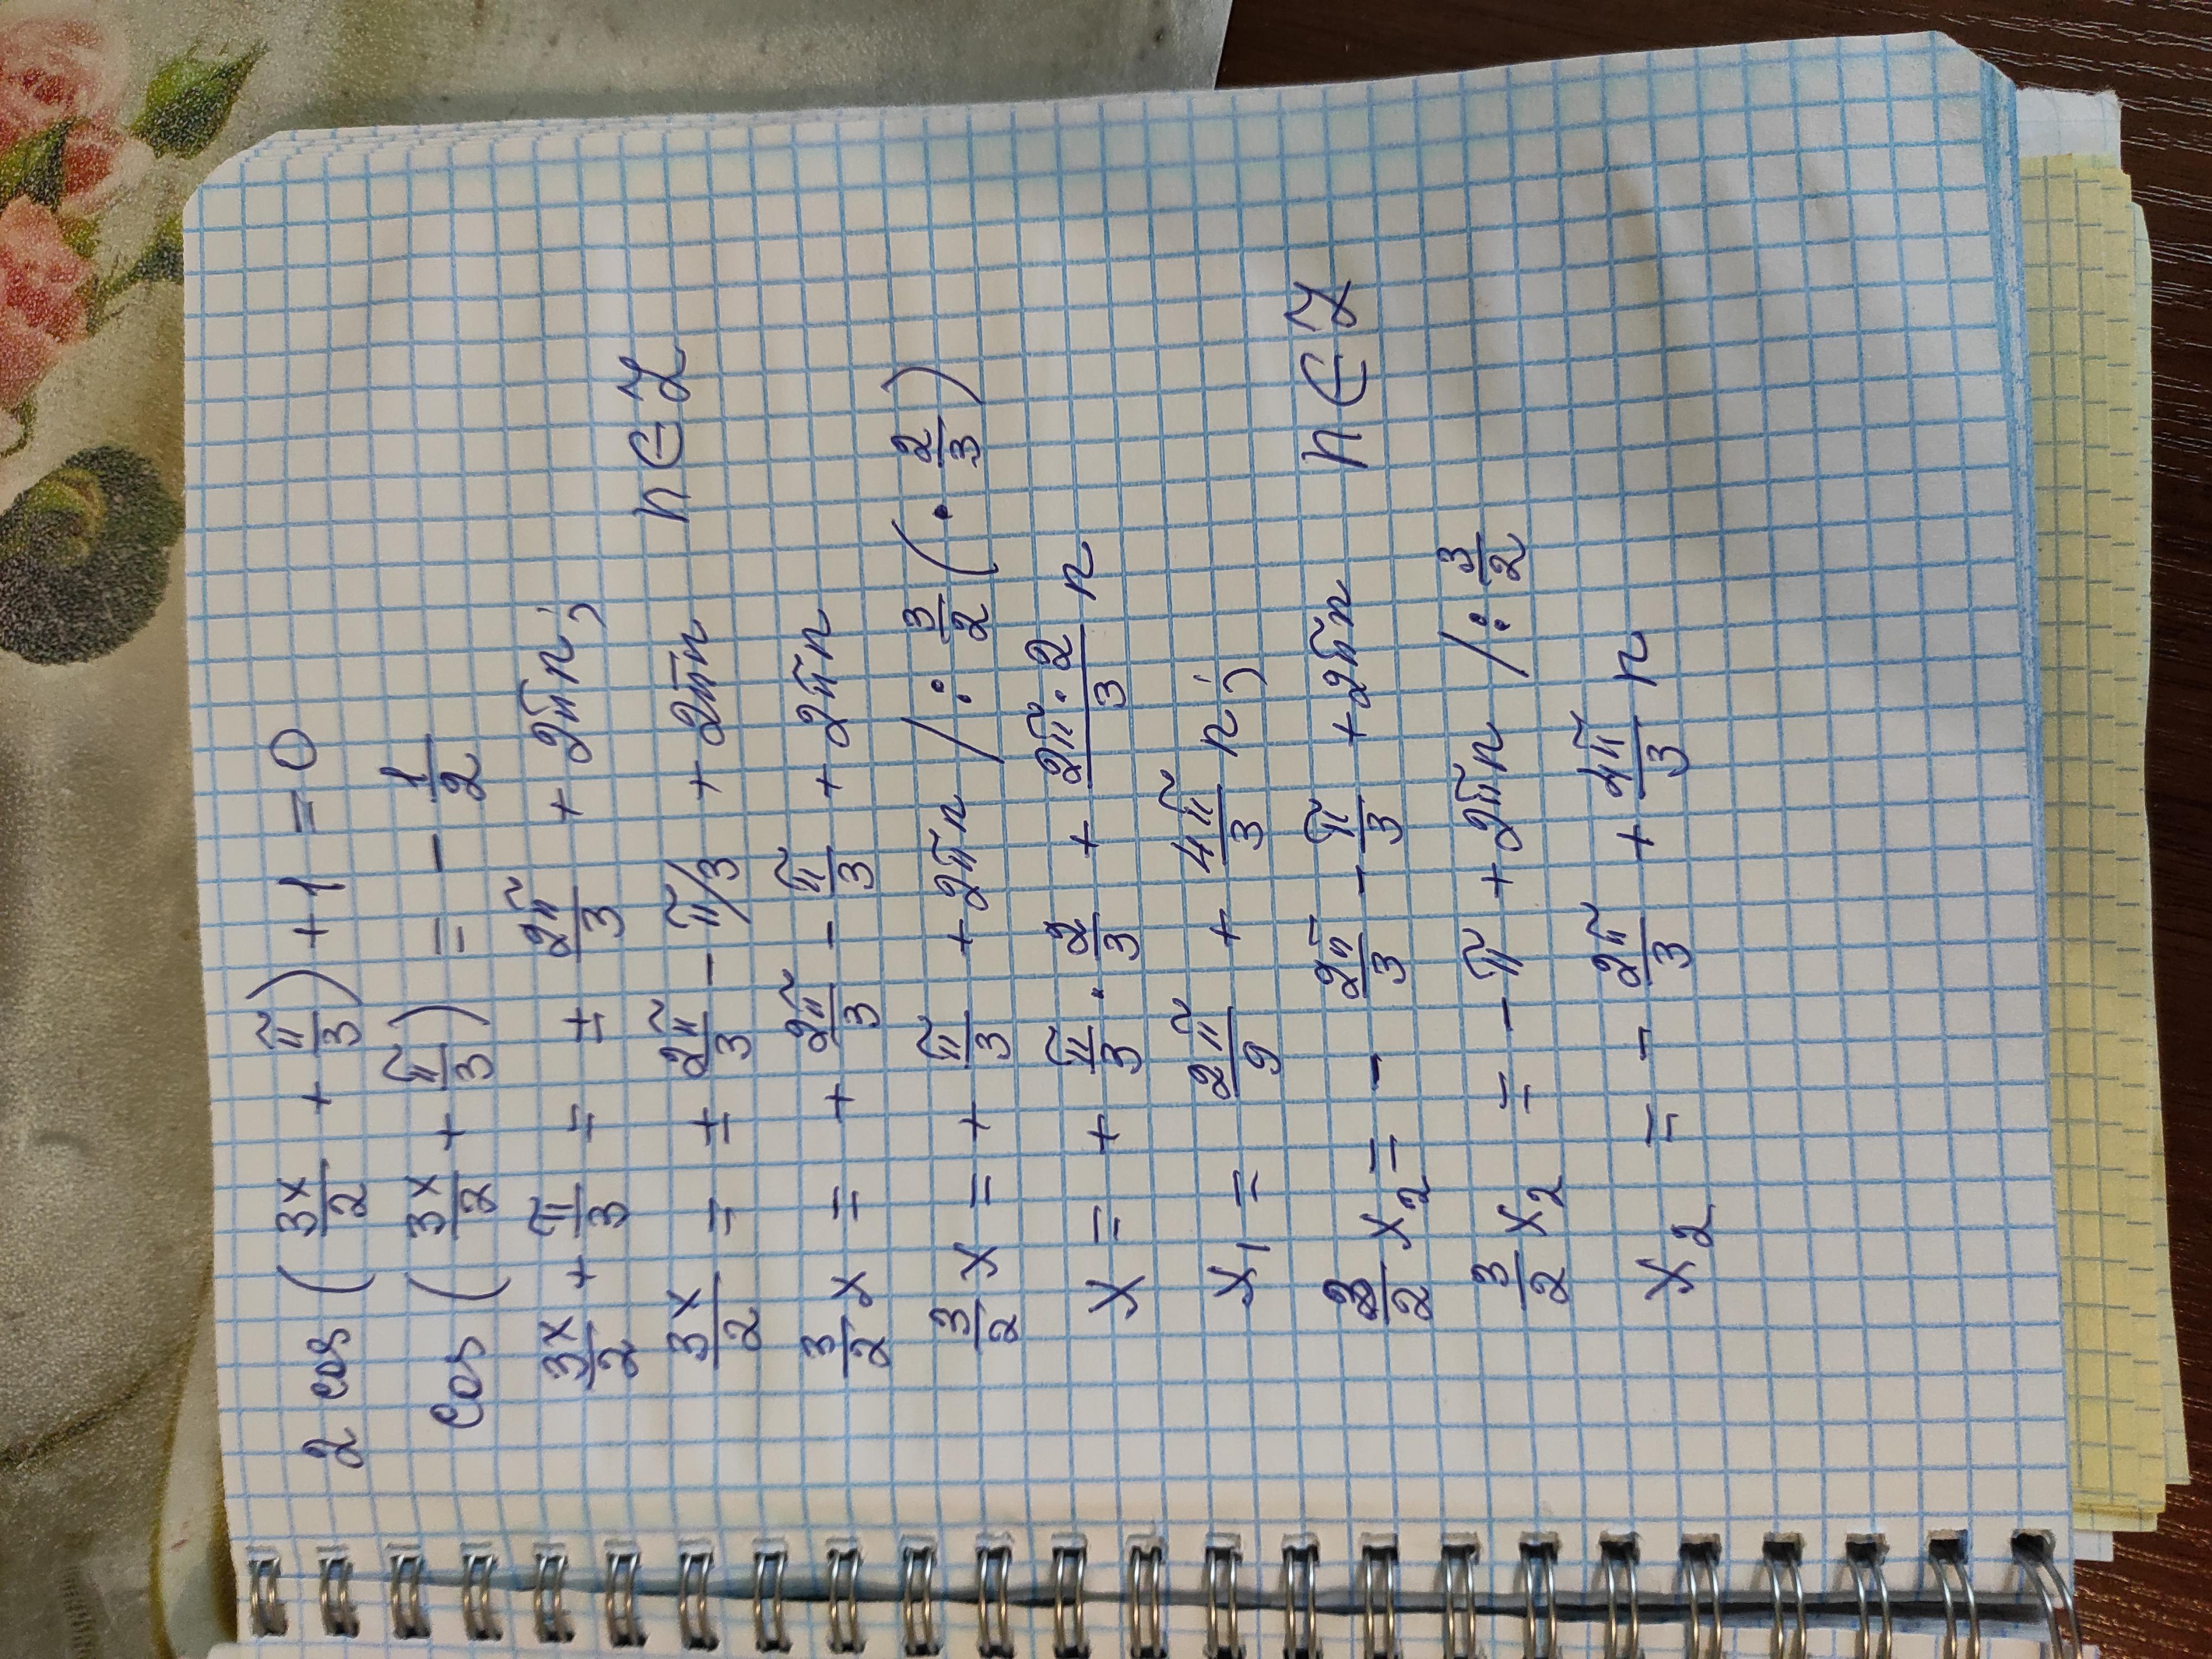 2 cos (3x/2 + π/3) + 1 = 0
cos (3x/2 + π/3) = - 1/2
3x/2 + π/3 = ± 2π/3 + 2πn; n ∈ Z
3x/2 = ± 2π/3 - π/3 + 2πn
3/2 x = + 2π/3 - π/3 + 2πn
3/2 x = + π/3 + 2πn / : 3/2 (· 2/3)
x = + π/3 · 2/3 + 2π·2/3 n
x₁ = 2π/9 + 4π/3 n; n ∈ Z
3/2 x₂ = - 2π/3 - π/3 + 2πn
3/2 x₂ = - π + 2πn / : 3/2
x₂ = - 2π/3 + 4π/3 n